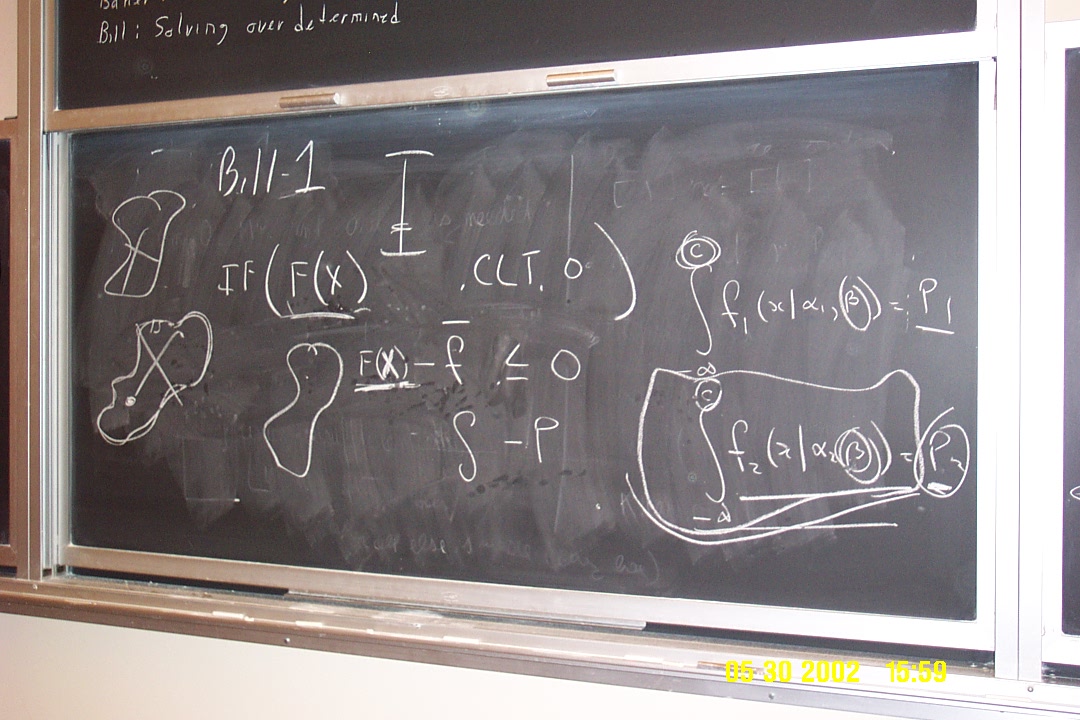 Bill: Solving over determined
Bill-1
IF(F(X) .CLT. 0)
F(X) - f̅ ≤ 0
∫ - P
C
∫ f₁(x|α₁,β) = P₁
-∞
C
∫ f₂(x|α₂β) = P₂
-∞
05 30 2002 15:59